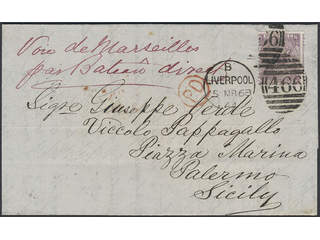 Voie de Marseilles
par Bateau direct
PD
B
LIVERPOOL
5 MR 63
466
Sigr Giuseppe Verde
Viccolo Pappagallo
Piazza Marina
Palermo
Sicily